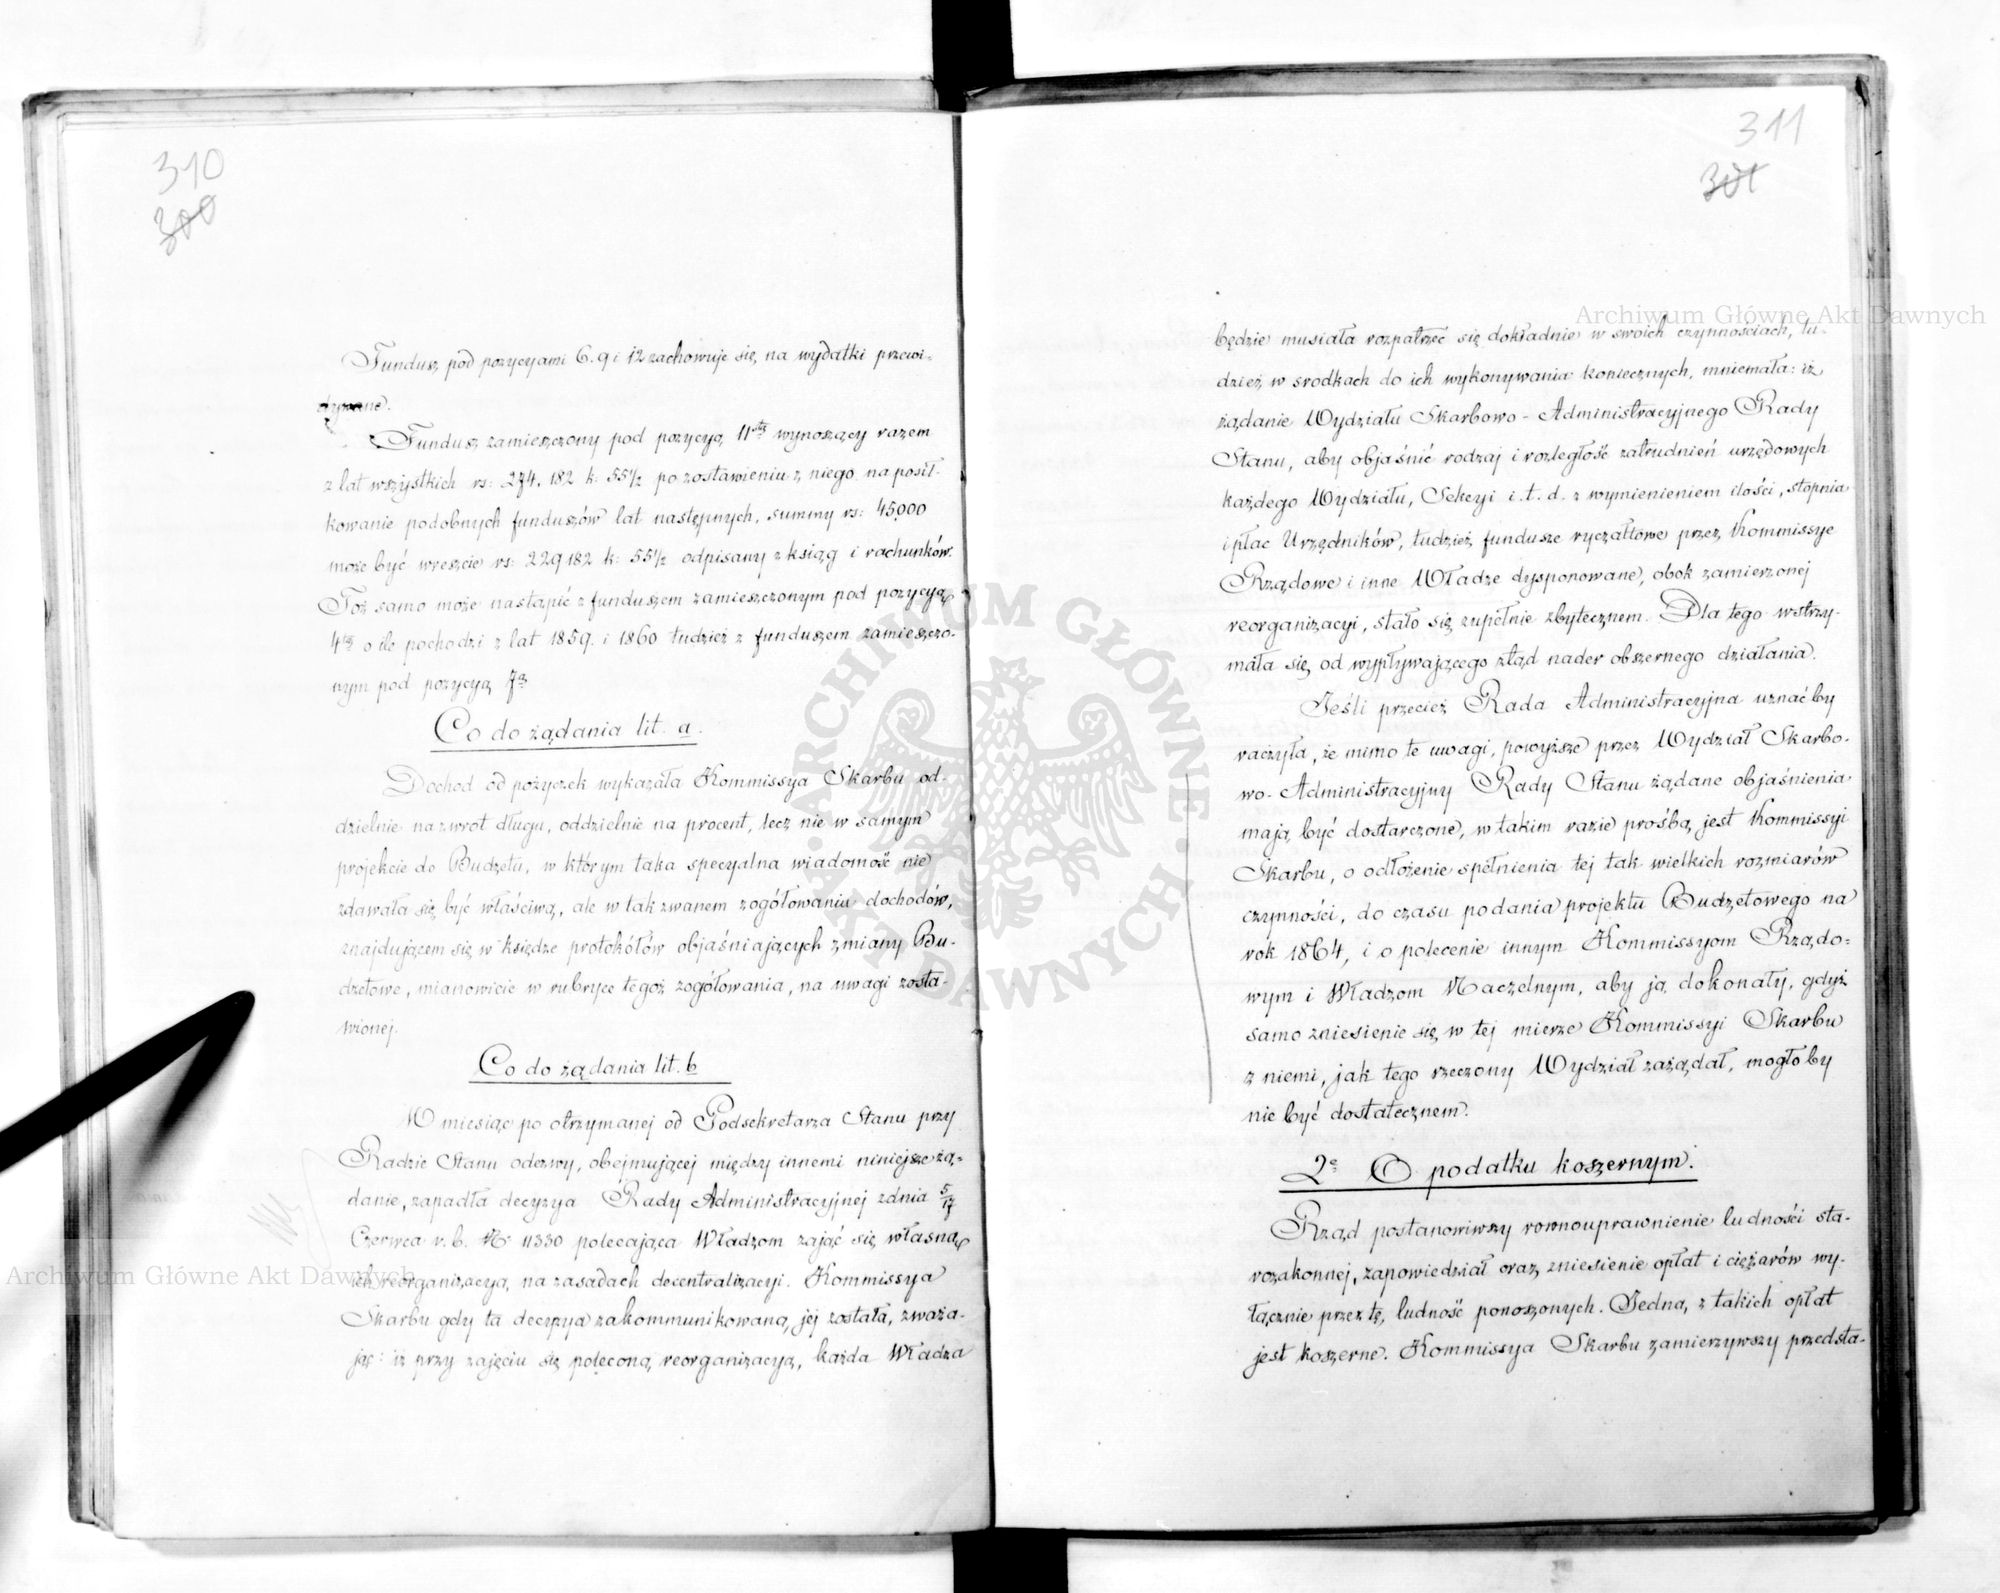 310
300
Fundusz pod pozycyami 6. 9 i 12 zachowuje się na wydatki przewi-
dywane.
Fundusz zamieszczony pod pozycyą 11tą wynoszący razem
z lat wszystkich rs: 274.182 k: 55½ po zostawieniu z niego na posił-
kowanie podobnych funduszów lat następnych, summy rs: 45,000
może być wreszcie rs: 229182 k: 55½ odpisany z ksiąg i rachunków.
Toż samo może nastąpić z funduszem zamieszczonym pod pozycyą
4tą o ile pochodzi z lat 1859. i 1860 tudzież z funduszem zamieszczo-
nym pod pozycyą 7ą
Co do żądania lit. a.
Dochod od pożyczek wykazała Kommissya Skarbu od-
dzielnie na zwrot długu, oddzielnie na procent, lecz nie w samym
projekcie do Budżetu, w którym taka specyalna wiadomość nie
zdawała się być właściwą, ale w tak zwanem zogółowaniu dochodów,
znajdującem się w księdze protokółów objaśniających zmiany Bu-
dżetowe, mianowicie w rubryce tegoż zogółowania, na uwagi zosta-
wionej.
Co do żądania lit. b
W miesiąc po otrzymanej od Podsekretarza Stanu przy
Radzie Stanu odezwy, obejmującej między innemi niniejsze żą-
danie, zapadła decyzya Rady Administracyjnej z dnia 5/17
Czerwca r. b. Nr 11330 polecająca Władzom zająć się własną
ich reorganizacyą, na zasadach decentralizacyi. Kommissya
Skarbu gdy ta decyzya zakommunikowaną jej została, zważa-
jąc: iż przy zajęciu się poleconą reorganizacyą, każda Władza
311
301
będzie musiała rozpatrzeć się dokładnie w swoich czynnościach, tu-
dzież w srodkach do ich wykonywania koniecznych, mniemała: iż
żądanie Wydziału Skarbowo-Administracyjnego Rady
Stanu, aby objaśnić rodzaj i rozległość zatrudnień urzędowych
każdego Wydziału, Sekcyi i. t. d. z wymienieniem ilości, stopnia
i płac Urzędników, tudzież fundusze ryczałtowe przez Kommissye
Rządowe i inne Władze dysponowane, obok zamierzonej
reorganizacyi, stało się zupełnie zbytecznem. Dla tego wstrzy-
mała się od wypływającego ztąd nader obszernego działania.
Jeśli przecież Rada Administracyjna uznać by
raczyła, że mimo te uwagi, powyższe przez Wydział Skarbo-
wo-Administracyjny Rady Stanu żądane objaśnienia
mają być dostarczone, w takim razie prośbą jest Kommissyi
Skarbu, o odłożenie spełnienia tej tak wielkich rozmiarów
czynności, do czasu podania projektu Budżetowego na
rok 1864, i o polecenie innym Kommissyom Rządo=
wym i Władzom Naczelnym, aby ją dokonały, gdyż
samo zniesienie się w tej mierze Kommissyi Skarbu
z niemi, jak tego rzeczony Wydział zażądał, mogło by
nie być dostatecznem.
2e O podatku koszernym.
Rząd postanowiwszy rownouprawnienie ludności sta-
rozakonnej, zapowiedział oraz zniesienie opłat i ciężarów wy-
łącznie przez tę ludność ponoszonych. Jedną z takich opłat
jest koszerne. Kommissya Skarbu zamierzywszy przedsta-
Archiwum Główne Akt Dawnych
Archiwum Główne Akt Dawnych
ARCHIWUM GŁÓWNE AKT DAWNYCH